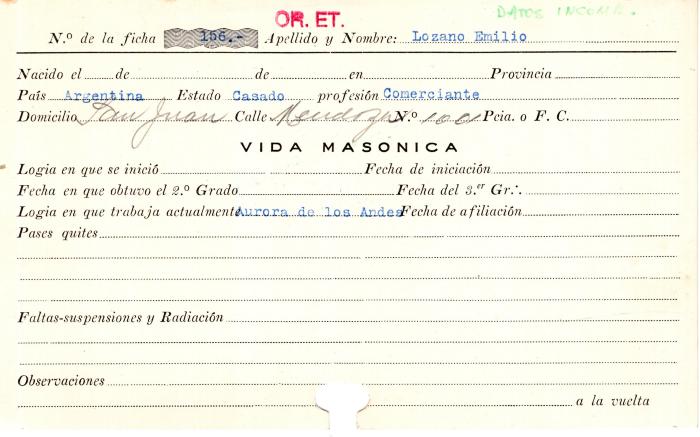 OR. ET. DATOS INCOMP.
N.º de la ficha 156.- Apellido y Nombre: Lozano Emilio
Nacido el de de en Provincia
País Argentina Estado Casado profesión Comerciante
Domicilio San Juan Calle Mendoza N.º Pcia. o F. C.
VIDA MASONICA
Logia en que se inició Fecha de iniciación
Fecha en que obtuvo el 2.º Grado Fecha del 3.er Gr∴
Logia en que trabaja actualmente Aurora de los Andes Fecha de afiliación
Pases quites
Faltas-suspensiones y Radiación
Observaciones
a la vuelta